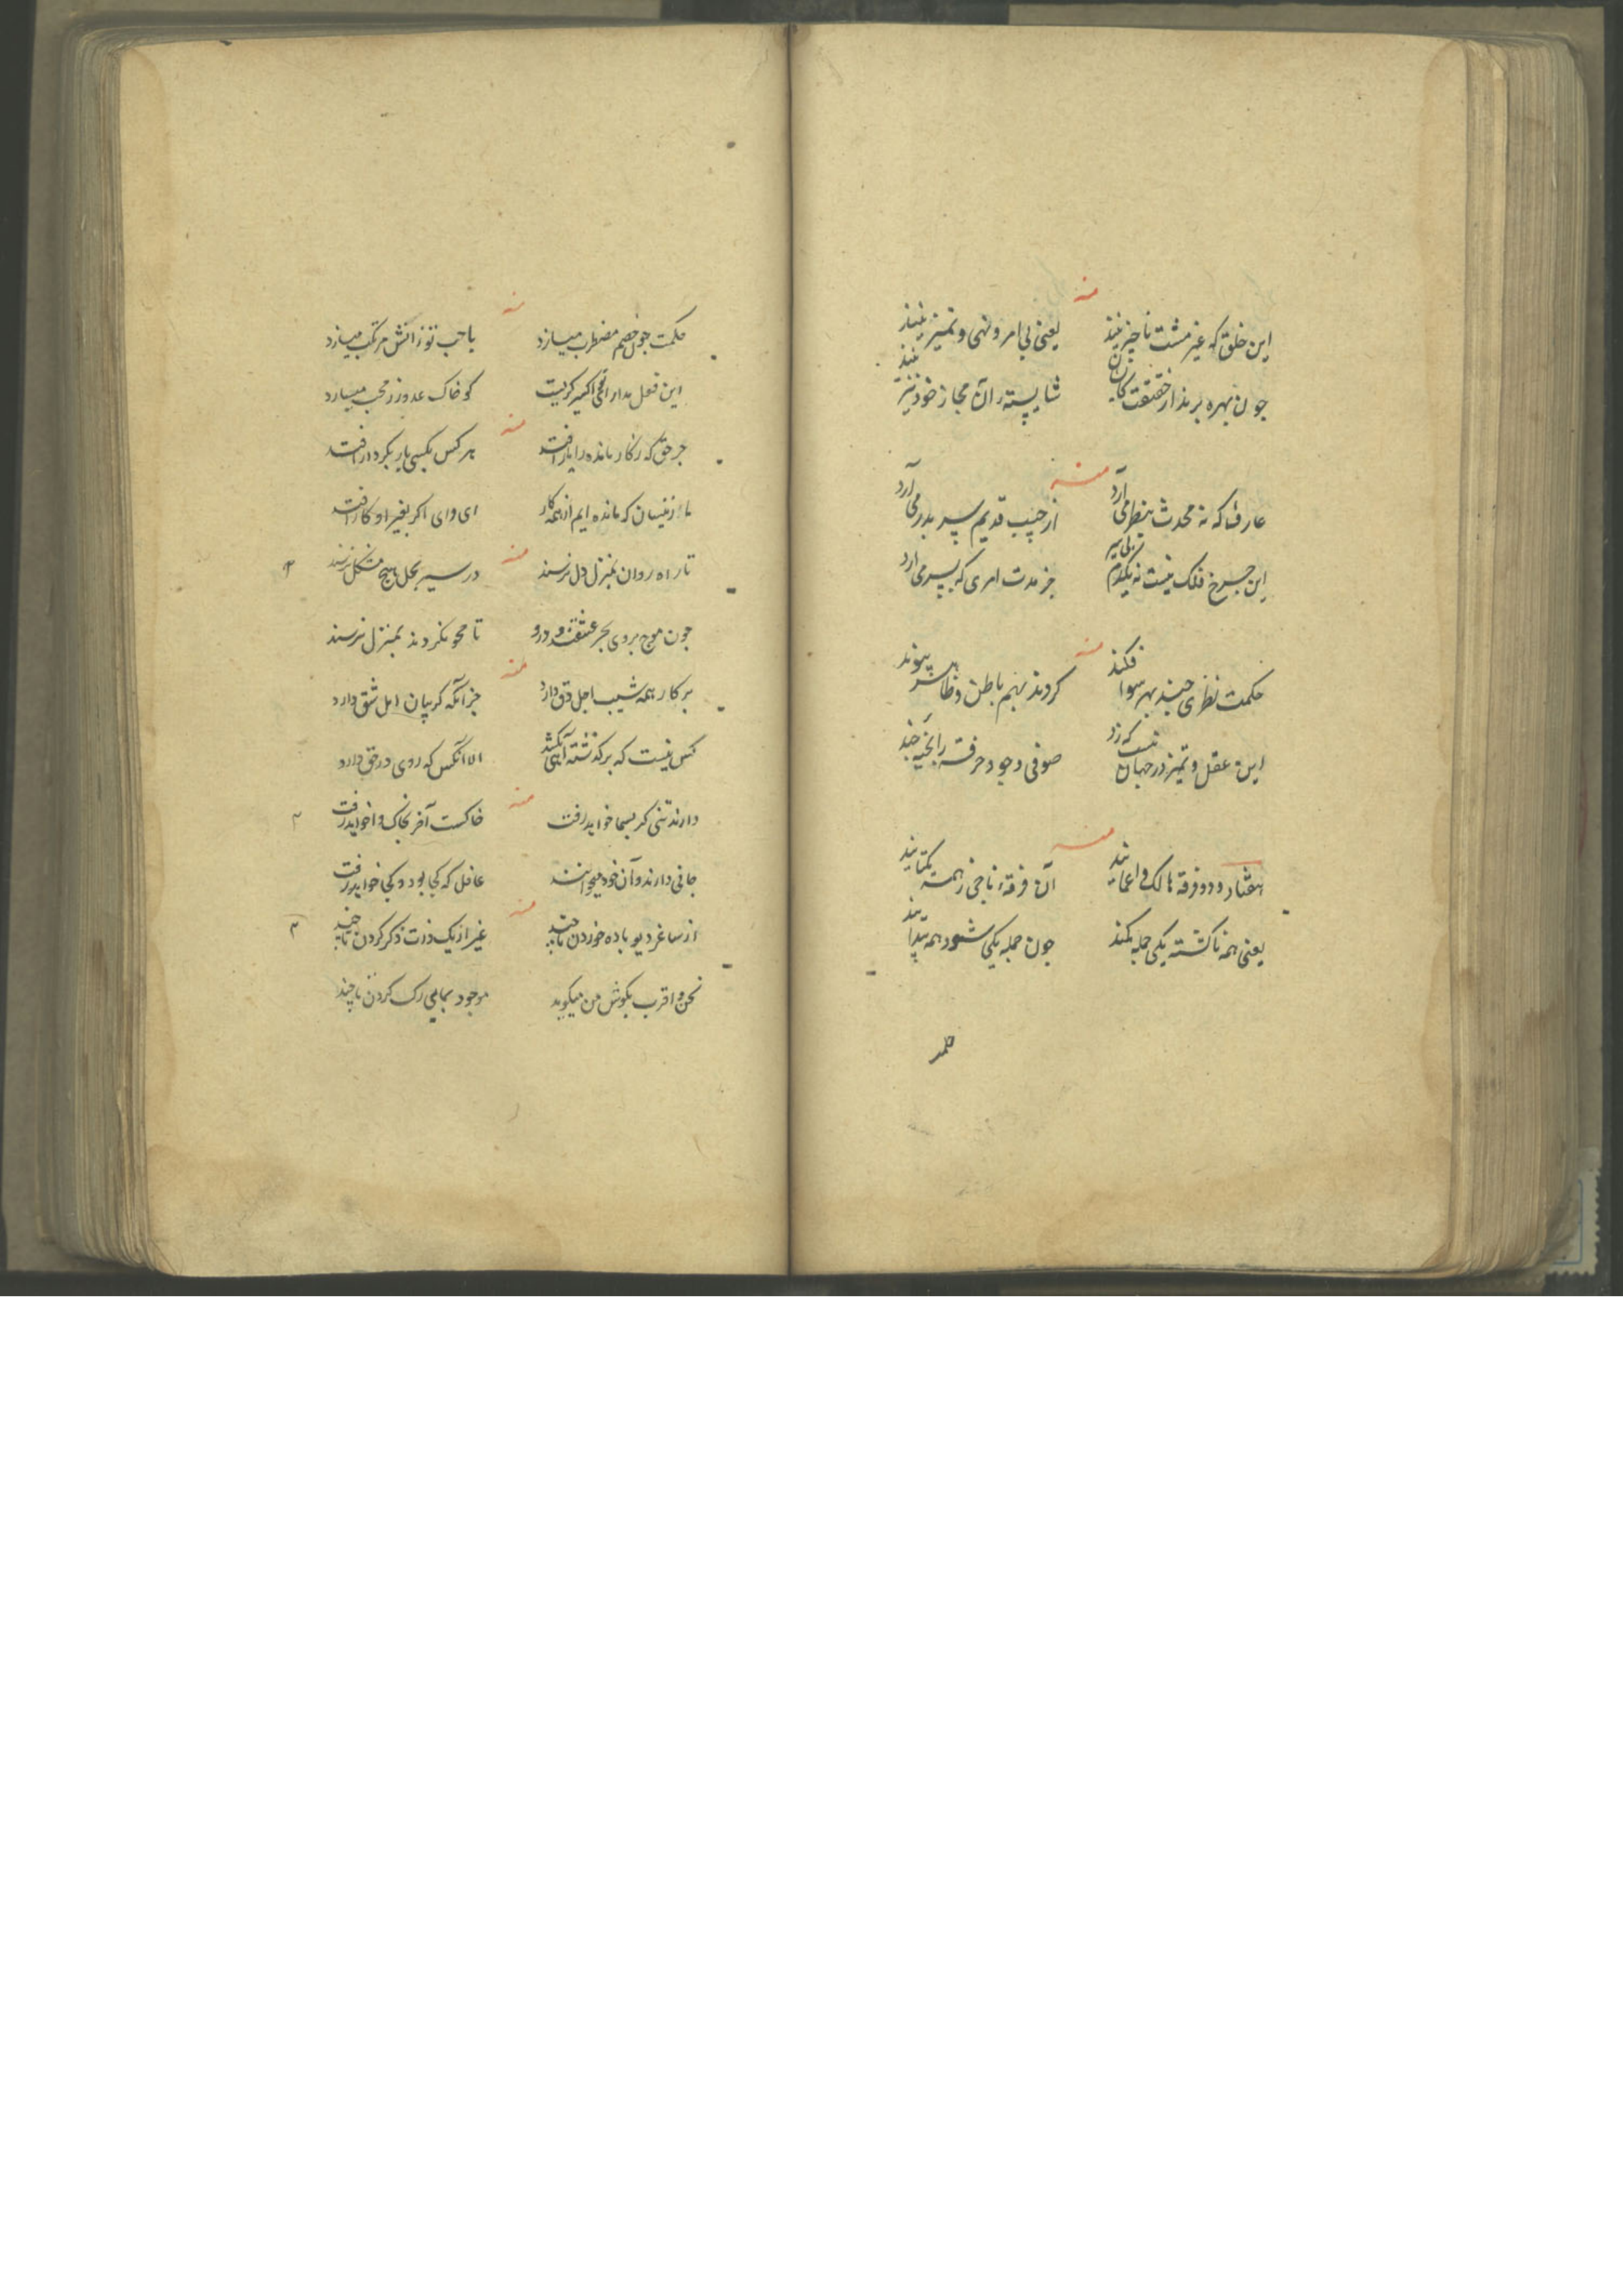 منه
این خلق که غیر مشت ناچیز نیند یعنی بی امر و نهی و تمیز نیند
چون بهره برند از حقیقت کایشان شایسته آن مجاز خود نیز نیند
منه
عارف که نه محدث بنظر می آرد از جیب قدیم سر بدر می آرد
این چرخ فلک نیست جز مدت امری که بسر می آرد
منه
حکمت نظری چند بهر سو افکند کردند بهم باطن و ظاهر پیوند
این عقل و تمیز در جهان نیست که زد صوفی وجود خرقه را بخیه چند
منه
هفتاد و دو فرقه هالک و اعمایند آن فرقه ناجی ز همه یکتایند
یعنی همه ناگشته یکی جمله یکند چون جمله یکی شود همه پیدایند
حکمت
منه
حکمت چون خصم مضطرب میسازد با حب تو ز آتش مرکب میسازد
این فعل مدار اکسیر کریست کو خاک عدو زر محب میسازد
منه
جز حق که ز کار مانده را یار افتد هر کس بکسی یار بکردار افتد
ما زینسان که مانده ایم از همه کار ای وای اکر بغیر او کار افتد
منه
تا راه روان بمنزل دل نرسند در سیر بحل هیچ مشکل نرسند
چون موج بروی بحر عشقند و درو تا محو نکردند بمنزل نرسند
منه
بر کار همه شیب اجل دق دارد جز آنکه کریبان امل شق دارد
کس نیست که بر کذشته آهی نکشد الا آنکس که روی در حق دارد
منه
دارند تنی که بسما خواهد رفت خاکست آخر بخاک وا خواهد رفت
جانی دارند و آن خود میخوانند غافل که کجا بود و کجا خواهد رفت
منه
از ساغر دیو باده خوردن تا چند غیر از یک ذات ذکر کردن تا چند
نحن اقرب بکوش من میکوید موجود بمامی رک کردن تا چند